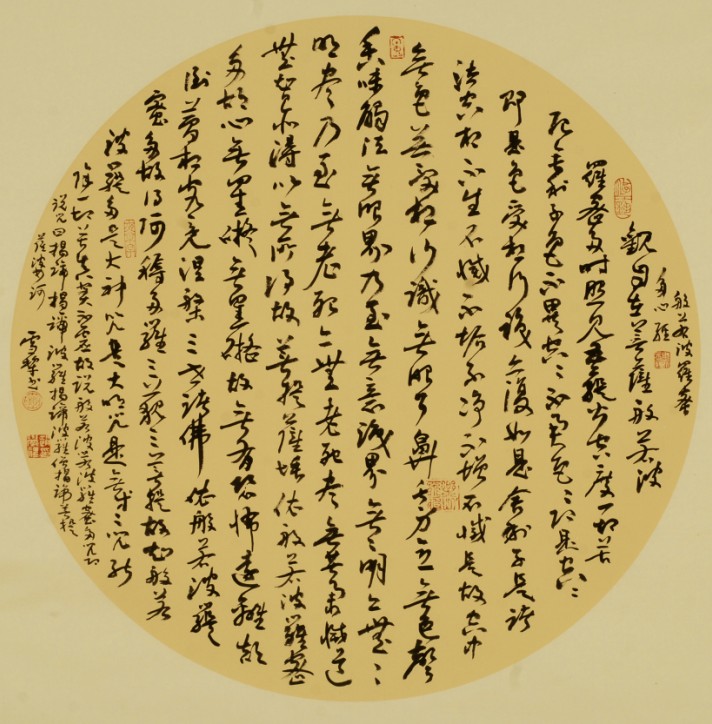 般若波羅蜜
多心經
觀自在菩薩般若波
羅蜜多時照見五蘊皆空度一切苦
厄舍利子色不異空〻不異色〻即是空〻
即是色受想行識亦復如是舍利子是諸
法空相不生不滅不垢不淨不增不減是故空中
無色無受想行識無眼耳鼻舌身意無色聲
香味觸法無眼界乃至無意識界無〻明亦無〻
明盡乃至無老死亦無老死盡無苦集滅道
無智亦得以無所得故菩提薩埵依般若波羅蜜
多故心無罣礙無罣礙故無有恐怖遠離顛
倒夢想究竟涅槃三世諸佛依般若波羅
蜜多故得阿耨多羅三藐三菩提故知般若
波羅多是大神咒是大明咒是無等〻咒能
除一切苦真實不虛故說般若波羅蜜多咒即
說咒曰揭諦揭諦波羅揭諦波羅僧揭諦菩提
薩婆訶
雪犁書